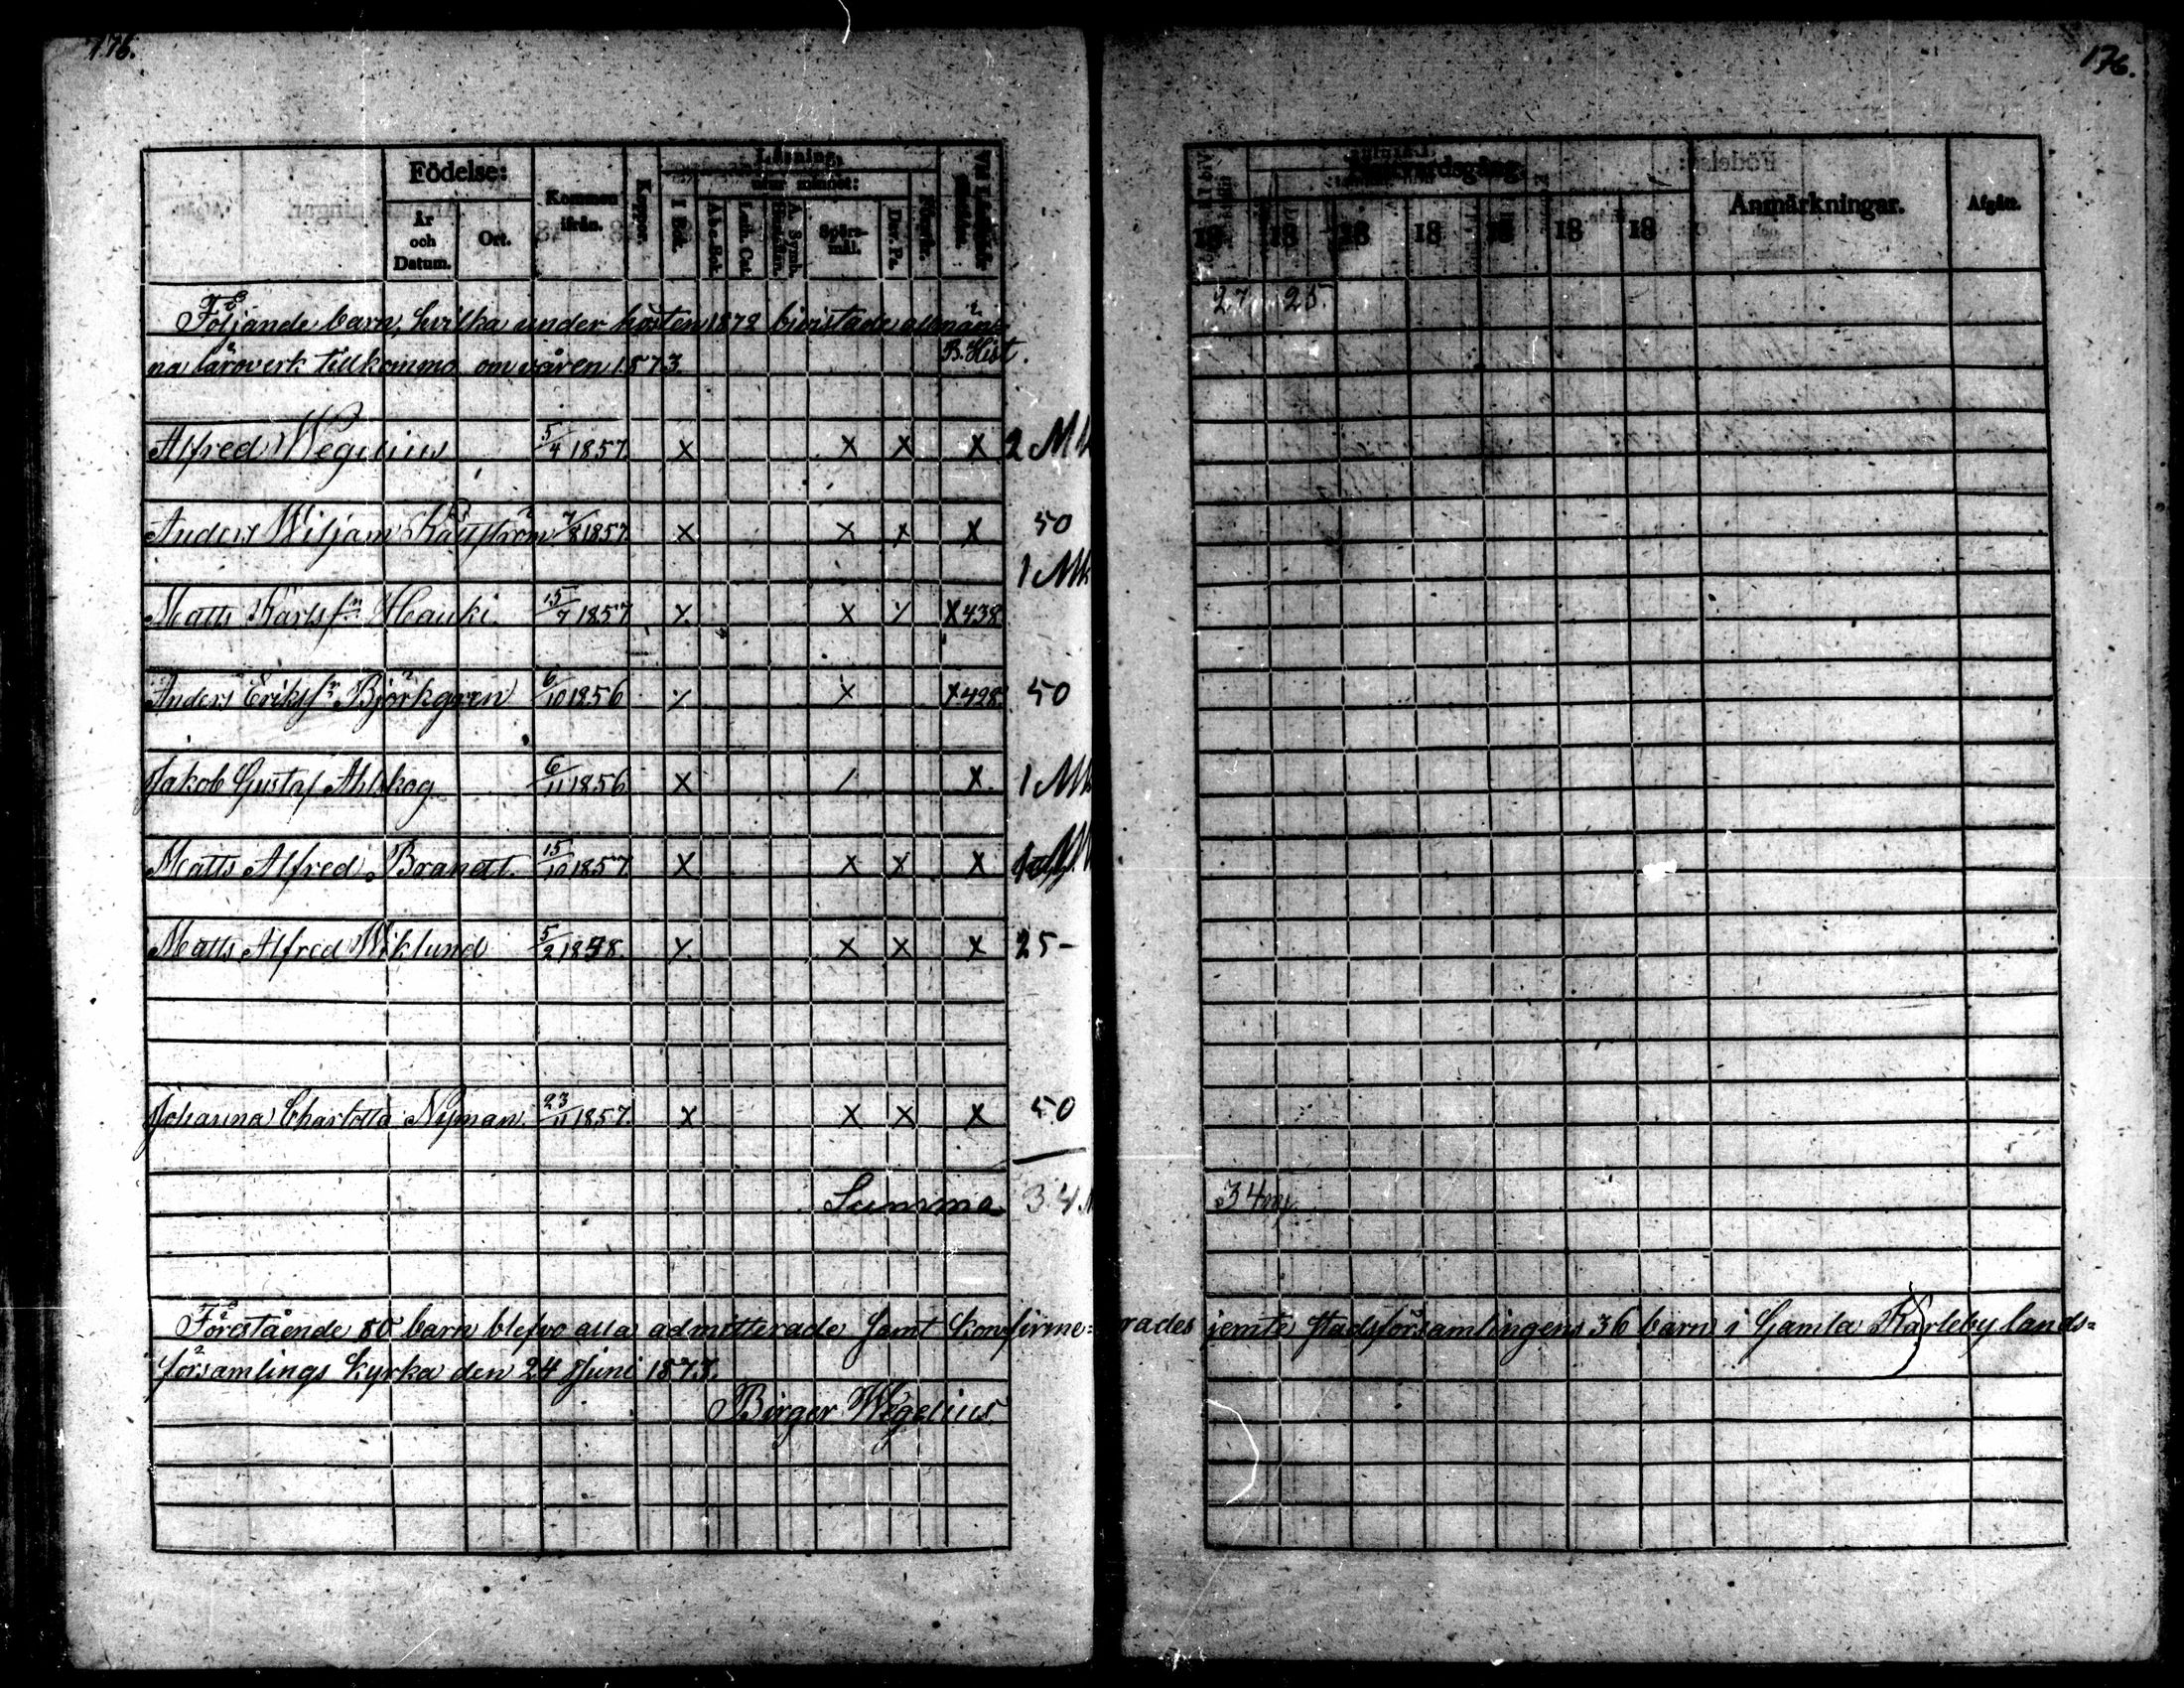 176.
176.
Födelse:
År och Datum.
Ort.
Kommen ifrån.
Koppor.
Läsning,
utur minnet:
I Bok.
A b c-Bok.
Luth. Cat.
A. Symb.
Spörs-mål.
Dav. Ps.
18 18 18 18 18 18 18
Anmärkningar.
Afgått.
Följande barn, hvilka under hösten 1872 bivistade allmän-
na läroverk tillkommo om våren 1873.
B. Hist.
27 25.
Alfred Wegelius 5/4 1857 X X X X 2 Mk
Anders Wiljam 7/8 1857 X X X X 50
1 Mk
Matts Karlsson Hauki. 15/7 1857 X X X X 438
Anders Eriksson Björkgren 6/10 1856 X X X 428. 50
Jakob Gustaf Ahlskog 6/11 1856 X / X 1 Mk
Matts Alfred Brandt. 15/10 1857 X X X X
Matts Alfred Wiklund 5/2 1858. X X X X 25-
Johanna Charlotta Nyman. 23/11 1857. X X X X 50
Summa 34 M
34
Förestående 80 barn blefvo alla admitterade samt konfirme=rades jemte stadsförsamlingens 36 barn i Gamla Karleby lands=
församlings kyrka den 24 Juni 1873.
Birger Wegelius